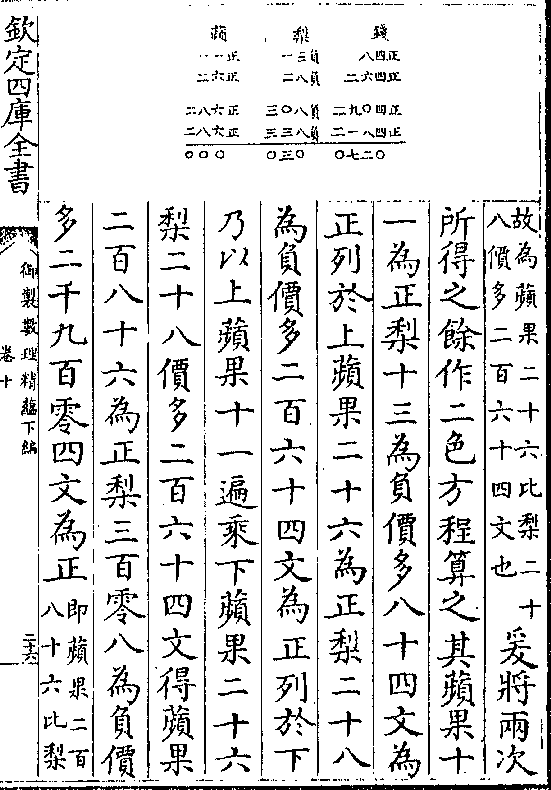 蘋 梨 錢
一一正 一三負 八四正
二六正 二八負 二六四正
二八六正 三〇八負 二九〇四正
二八六正 三三八負 二一八四正
〇〇〇 〇三〇 〇七二〇
故為蘋果二十六比梨二十
八價多二百六十四文也
爰將兩次
所得之餘作二色方程算之其蘋果十
一為正梨十三為負價多八十四文為
正列於上蘋果二十六為正梨二十八
為負價多二百六十四文為正列於下
乃以上蘋果十一遍乘下蘋果二十六
梨二十八價多二百六十四文得蘋果
二百八十六為正梨三百零八為負價
多二千九百零四文為正
即蘋果二百
八十六比梨
欽定四庫全書
御製數理精蘊下編
卷十
二六